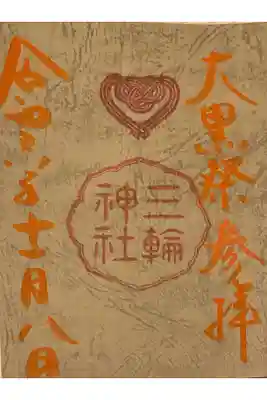 大黒祭参拝
三輪
神社
令和六年十一月八日